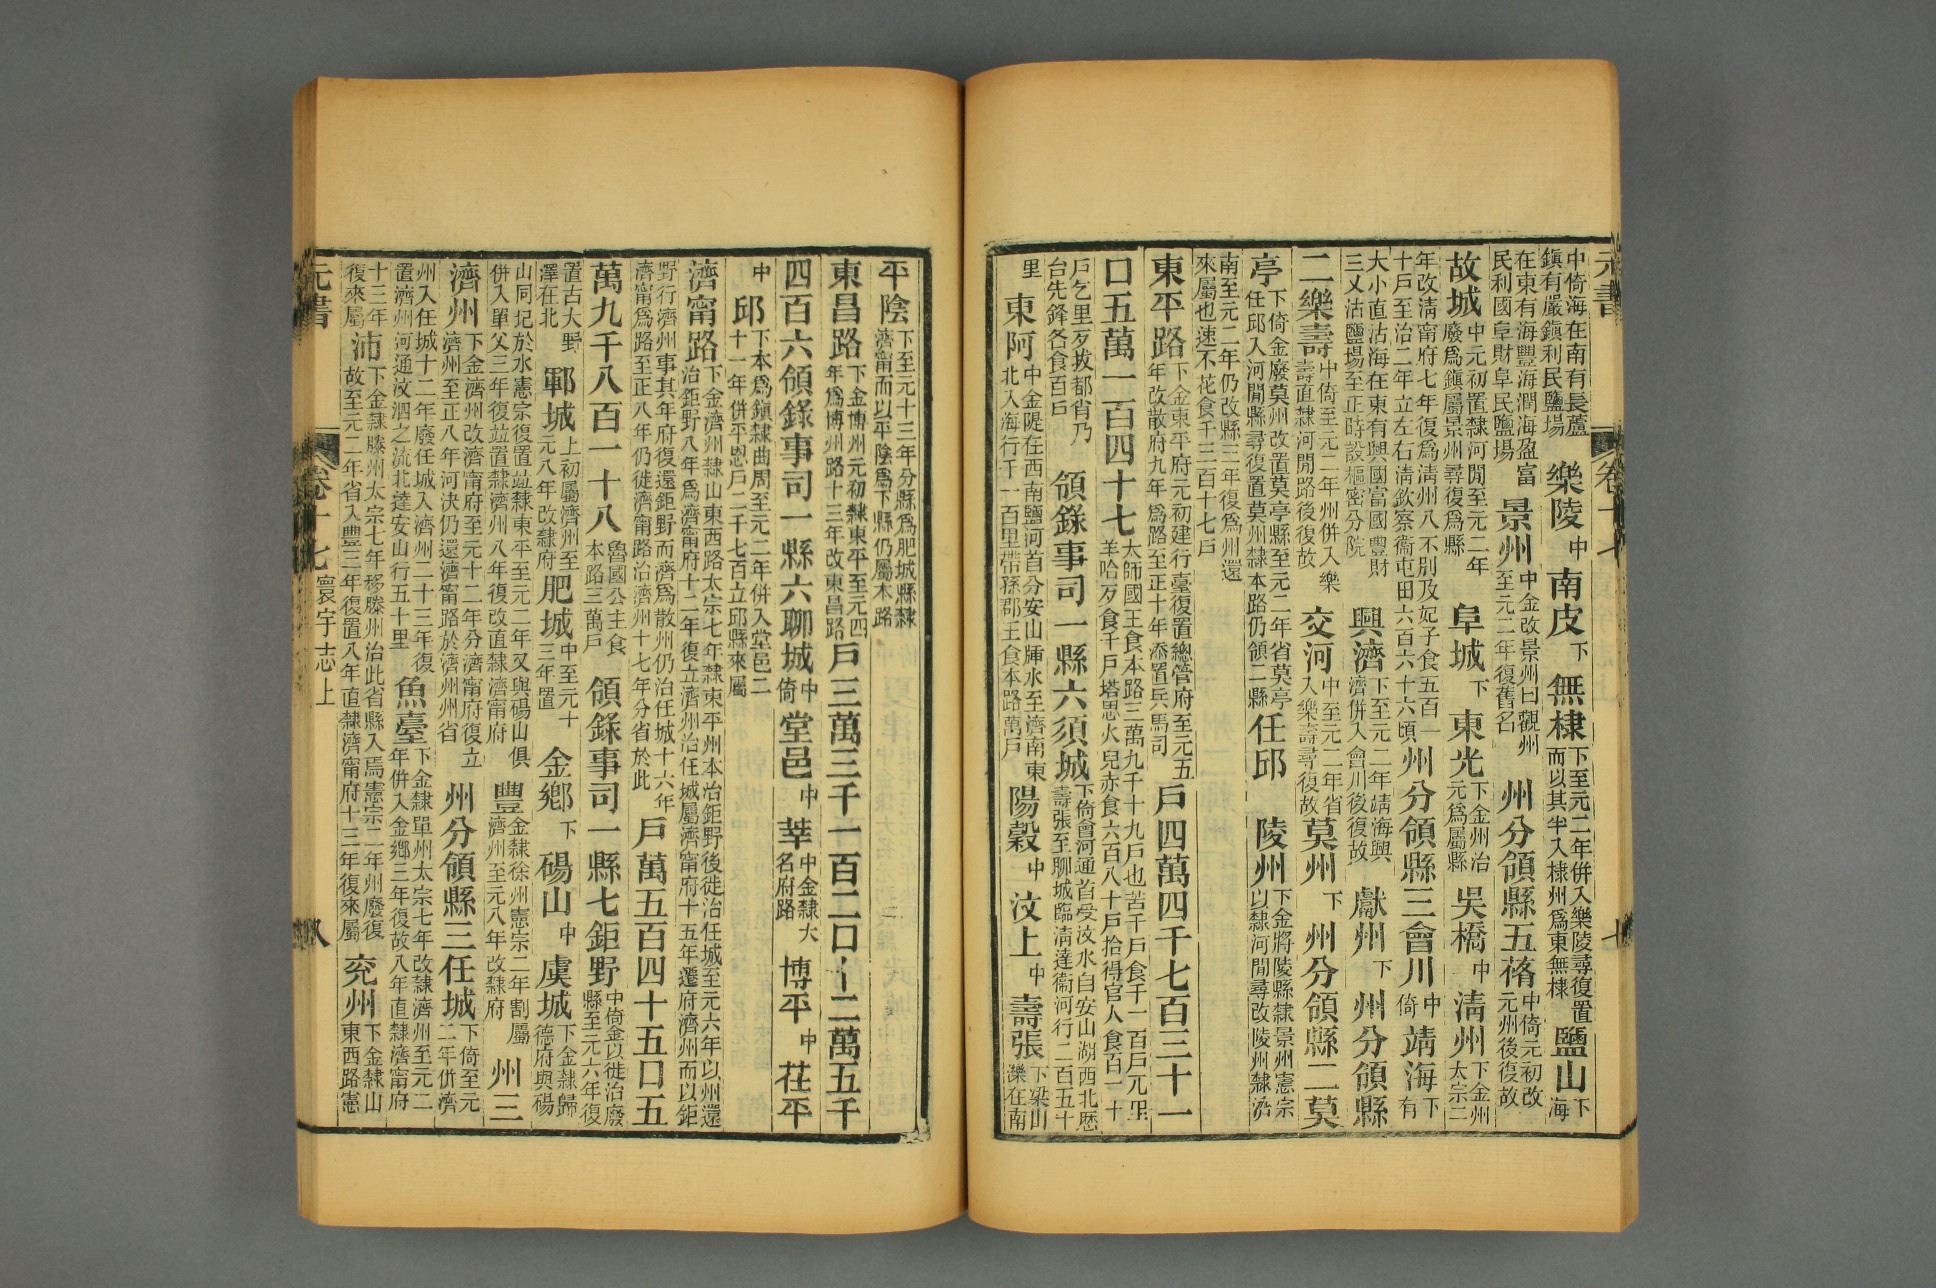 元書 卷十七 七
中倚海在南有長蘆鎮有嚴鎮利民鹽場 樂陵中 南皮下 無棣下至元二年併入樂陵尋復置而以其半入棣州爲東無棣 鹽山下海
在東有海豐海潤海盈富民利國阜財阜民鹽場 景州中金改景州曰觀州至元二年復舊名 州分領縣五蓨中倚元初改元州後復故
故城中元初置隸河閒至元二年廢爲鎮屬景州尋復爲縣 阜城下 東光下金州治元爲屬縣 吳橋中 淸州下金州太宗二
年改淸甯府七年復爲淸州八不別及妃子食五百一十戶至治二年立左右淸欽察衞屯田六百六十六頃 州分領縣三會川中倚 靖海下有
大小直沽海在東有興國富國豐財三乂沽鹽場至正時設樞密分院 興濟下至元二年靖海興濟併入會川後復故 獻州下 州分領縣
二樂壽中倚至元二年州併入樂壽直隸河閒路後復故 交河中至元二年省入樂壽尋復故 莫州下 州分領縣二莫
亭下倚金廢莫州改置莫亭縣至元二年省莫亭任邱入河閒縣尋復置莫州隸本路仍領二縣 任邱 陵州下金將陵縣隸景州憲宗以隸河閒尋改陵州隸濟
南至元二年仍改縣三年復爲州還來屬也速不花食千三百十七戶
東平路下金東平府元初建行臺復置總管府至元五年改散府九年爲路至正十年添置兵馬司 戶四萬四千七百三十一
口五萬一百四十七太師國王食本路三萬九千十九戶也苦千戶食千一百戶兀里羊哈歹食千戶塔思火兒赤食六百八十戶拾得官人食百一十
戶乞里歹拔都肖乃台先鋒各食百戶 領錄事司一縣六須城下倚會河通首受汶水自安山湖西北歷壽張至聊城臨淸達衞河行二百五十
里 東阿中金隄在西南鹽河首分安山牐水至濟南東北入海行千一百里帶孫郡王食本路萬戶 陽穀中 汶上中 壽張下梁山濼在南
平陰下至元十三年分縣爲肥城縣隸濟甯而以平陰爲下縣仍屬本路
東昌路下金博州元初隸東平至元四年爲博州路十三年改東昌路 戶三萬三千一百二口十二萬五千
四百六領錄事司一縣六聊城中倚 堂邑中 莘中金隸大名府路 博平中 茌平
中 邱下本爲鎮隸曲周至元二年併入堂邑二十一年併平恩戶二千七百立邱縣來屬
濟甯路下金濟州隸山東西路太宗七年隸東平州本治鉅野後徙治任城至元六年以州還治鉅野八年爲濟甯府十二年復立濟州治任城屬濟甯府十五年遷府濟州而以鉅
野行濟州事其年府復還鉅野而濟爲散州仍治任城十六年濟甯爲路至正八年仍徙濟甯路治濟州十七年分省於此 戶萬五百四十五口五
萬九千八百一十八魯國公主食本路三萬戶 領錄事司一縣七鉅野中倚金以徙治廢縣至元六年復
置古大野澤在北 鄆城上初屬濟州至元八年改隸府 肥城中至元十三年置 金鄕下 碭山中 虞城下金隸歸德府與碭
山同圮於水憲宗復置竝隸東平至元二年又與碭山俱併入單父三年復竝置隸濟州八年復改直隸濟甯府 豐金隸徐州憲宗二年割屬濟州至元八年改隸府 州三
濟州下金濟州改濟甯府至元十二年分濟甯府復立濟州至正八年河決仍還濟甯路於濟州州省 州分領縣三任城下倚至元二年併濟
州入任城十二年廢任城入濟州二十三年復置濟州河通汶泗之流北達安山行五十里 魚臺下金隸單州太宗七年改隸濟州至元二年併入金鄕三年復故八年直隸濟甯府
十三年復來屬 沛下金隸滕州太宗七年移滕州治此省縣入焉憲宗二年州廢復故至元二年省入豐三年復置八年直隸濟甯府十三年復來屬 兗州下金隸山東西路憲
元書 卷十七 寰宇志上 八